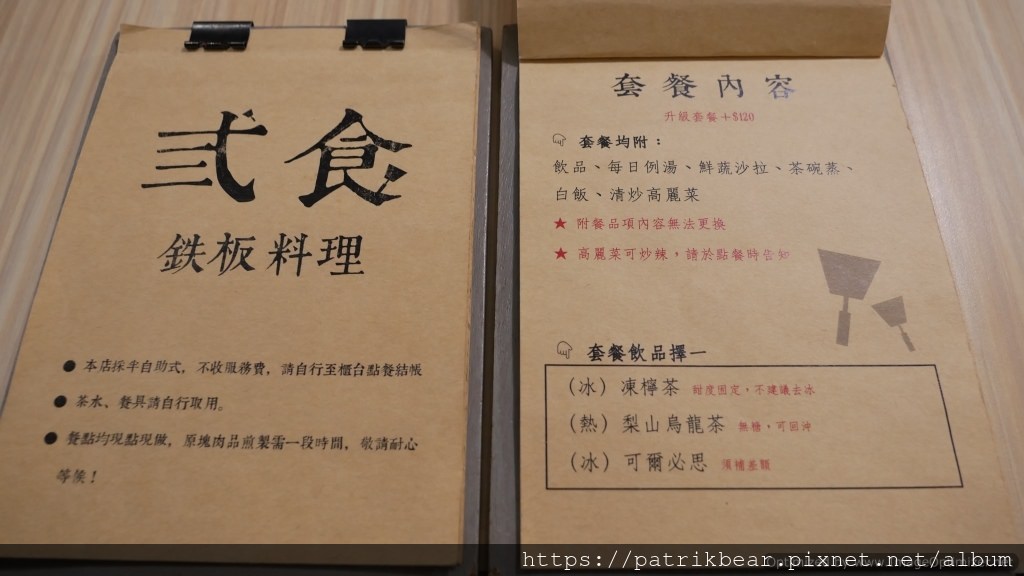 弍食
鉄板料理
● 本店採半自助式，不收服務費，請自行至櫃台點餐結帳
● 茶水、餐具請自行取用。
● 餐點均現點現做，原塊肉品煎製需一段時間，敬請耐心
等候！
套餐內容
升級套餐+$120
套餐均附：
飲品、每日例湯、鮮蔬沙拉、茶碗蒸、
白飯、清炒高麗菜
★ 附餐品項內容無法更換
★ 高麗菜可炒辣，請於點餐時告知
套餐飲品擇一
（冰）凍檸茶 甜度固定，不建議去冰
（熱）梨山烏龍茶 無糖，可回沖
（冰）可爾必思 須補差額
https://patrikbear.pixnet.net/album